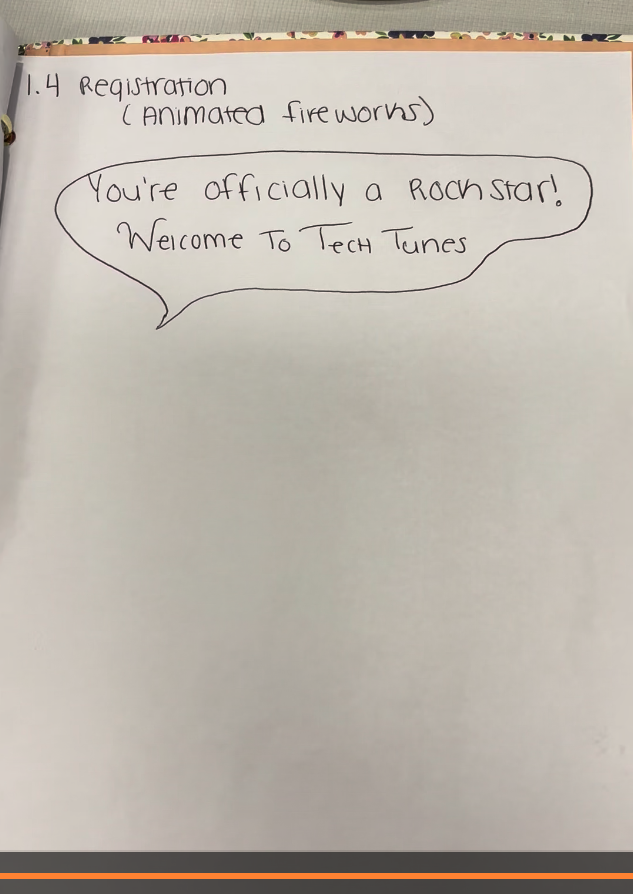 1.4 Registration
(Animated fireworks)
You're officially a Rockstar!
Welcome To Tech Tunes